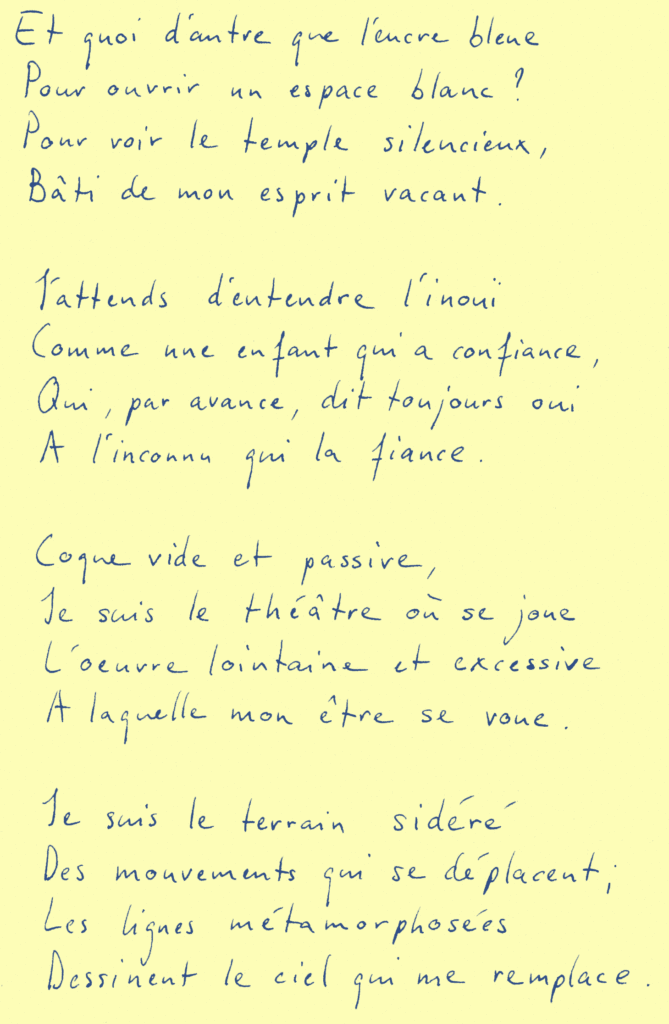 Et quoi d'autre que l'encre bleue
Pour ouvrir un espace blanc ?
Pour voir le temple silencieux,
Bâti de mon esprit vacant.
J'attends d'entendre l'inouï
Comme une enfant qui a confiance,
Qui, par avance, dit toujours oui
A l'inconnu qui la fiance.
Coque vide et passive,
Je suis le théâtre où se joue
L'oeuvre lointaine et excessive
A laquelle mon être se voue.
Je suis le terrain sidéré
Des mouvements qui se déplacent ;
Les lignes métamorphosées
Dessinent le ciel qui me remplace.